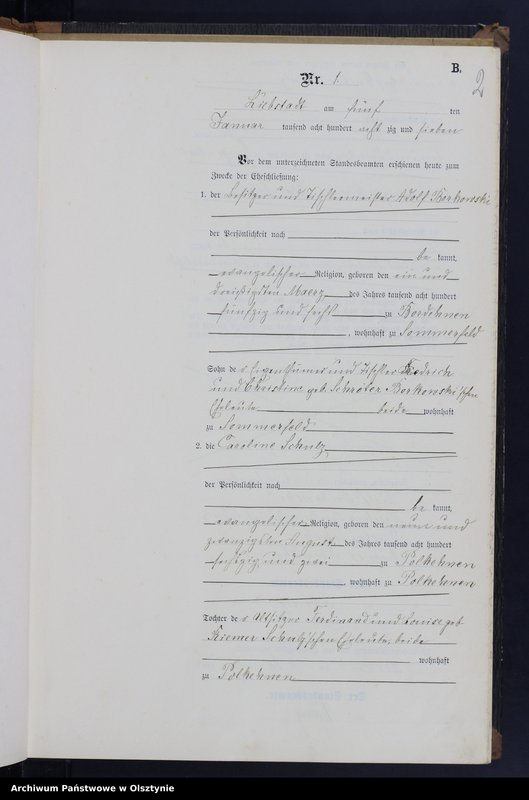 B.
2
Nr. 1.
Liebstadt am fünf ten
Januar tausend acht hundert acht zig und sieben
Vor dem unterzeichneten Standesbeamten erschienen heute zum
Zwecke der Eheschließung:
1. der Besitzer und Tischlermeister Adolf Borkowski
der Persönlichkeit nach
be kannt,
evangelischer Religion, geboren den ein und
dreißigsten Maerz des Jahres tausend acht hundert
fünfzig und sechs zu Bordehnen
, wohnhaft zu Sommerfeld
Sohn de s Eigenthümer und Tischler Friedrich
und Christine geb. Schröter Borkowski'schen
Eheleute beide wohnhaft
zu Sommerfeld
2. die Caroline Schulz
der Persönlichkeit nach
be kannt,
evangelischer Religion, geboren den neun und
zwanzigsten August des Jahres tausend acht hundert
sechszig und zwei zu Polkehnen
, wohnhaft zu Polkehnen
Tochter de s Altsitzer Ferdinand und Louise geb
Riemer Schulz'schen Eheleute, beide
wohnhaft
zu Polkehnen
Archiwum Państwowe w Olsztynie